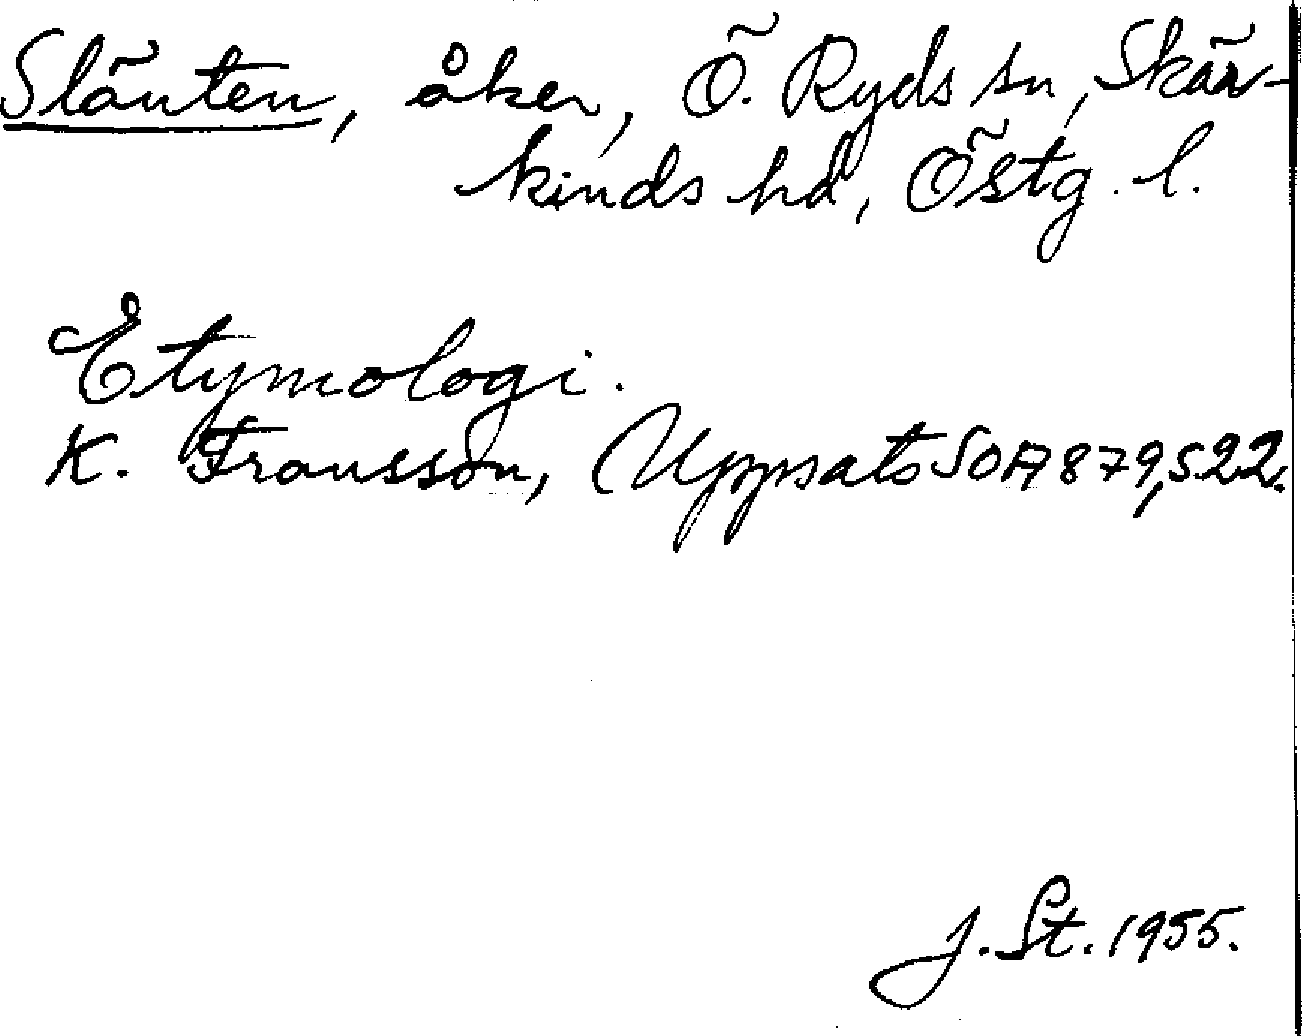 Slänten, åker, Ö. Ryds sn, Skär-
kinds hd, Östg. l.
Etymologi.
K. Fransson, Uppsats SOA 879, s 22.
J. St. 1955.